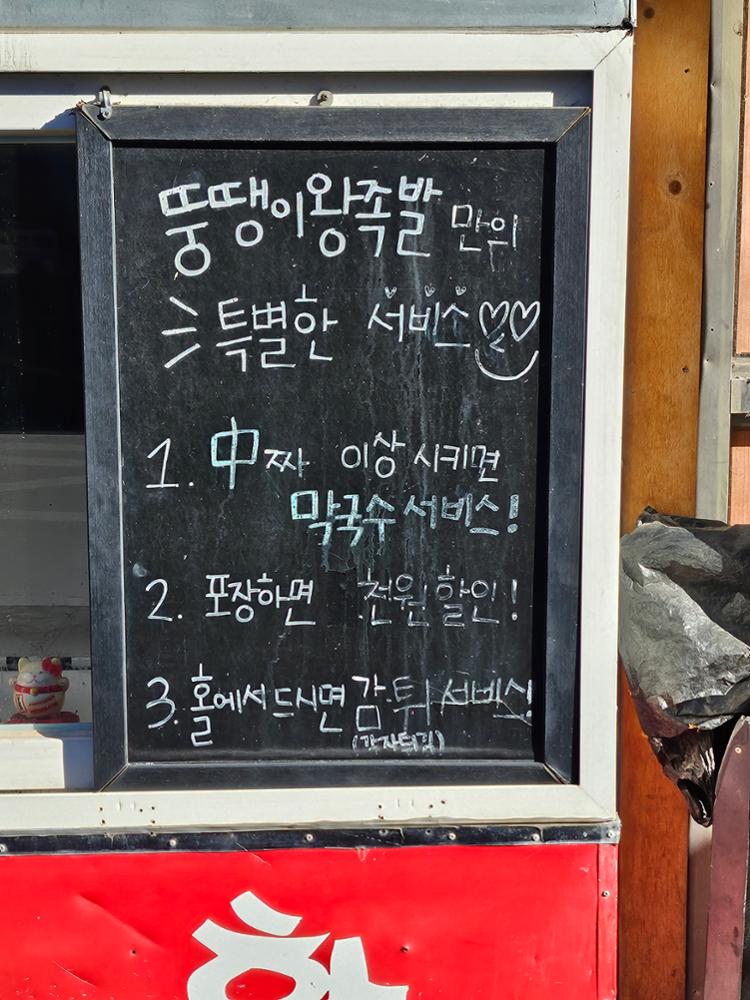 뚱땡이왕족발 만의
특별한 서비스
1. 中짜 이상 시키면
막국수 서비스!
2. 포장하면 천원 할인!
3. 홀에서 드시면 감.튀 서비스!
(감자튀김)